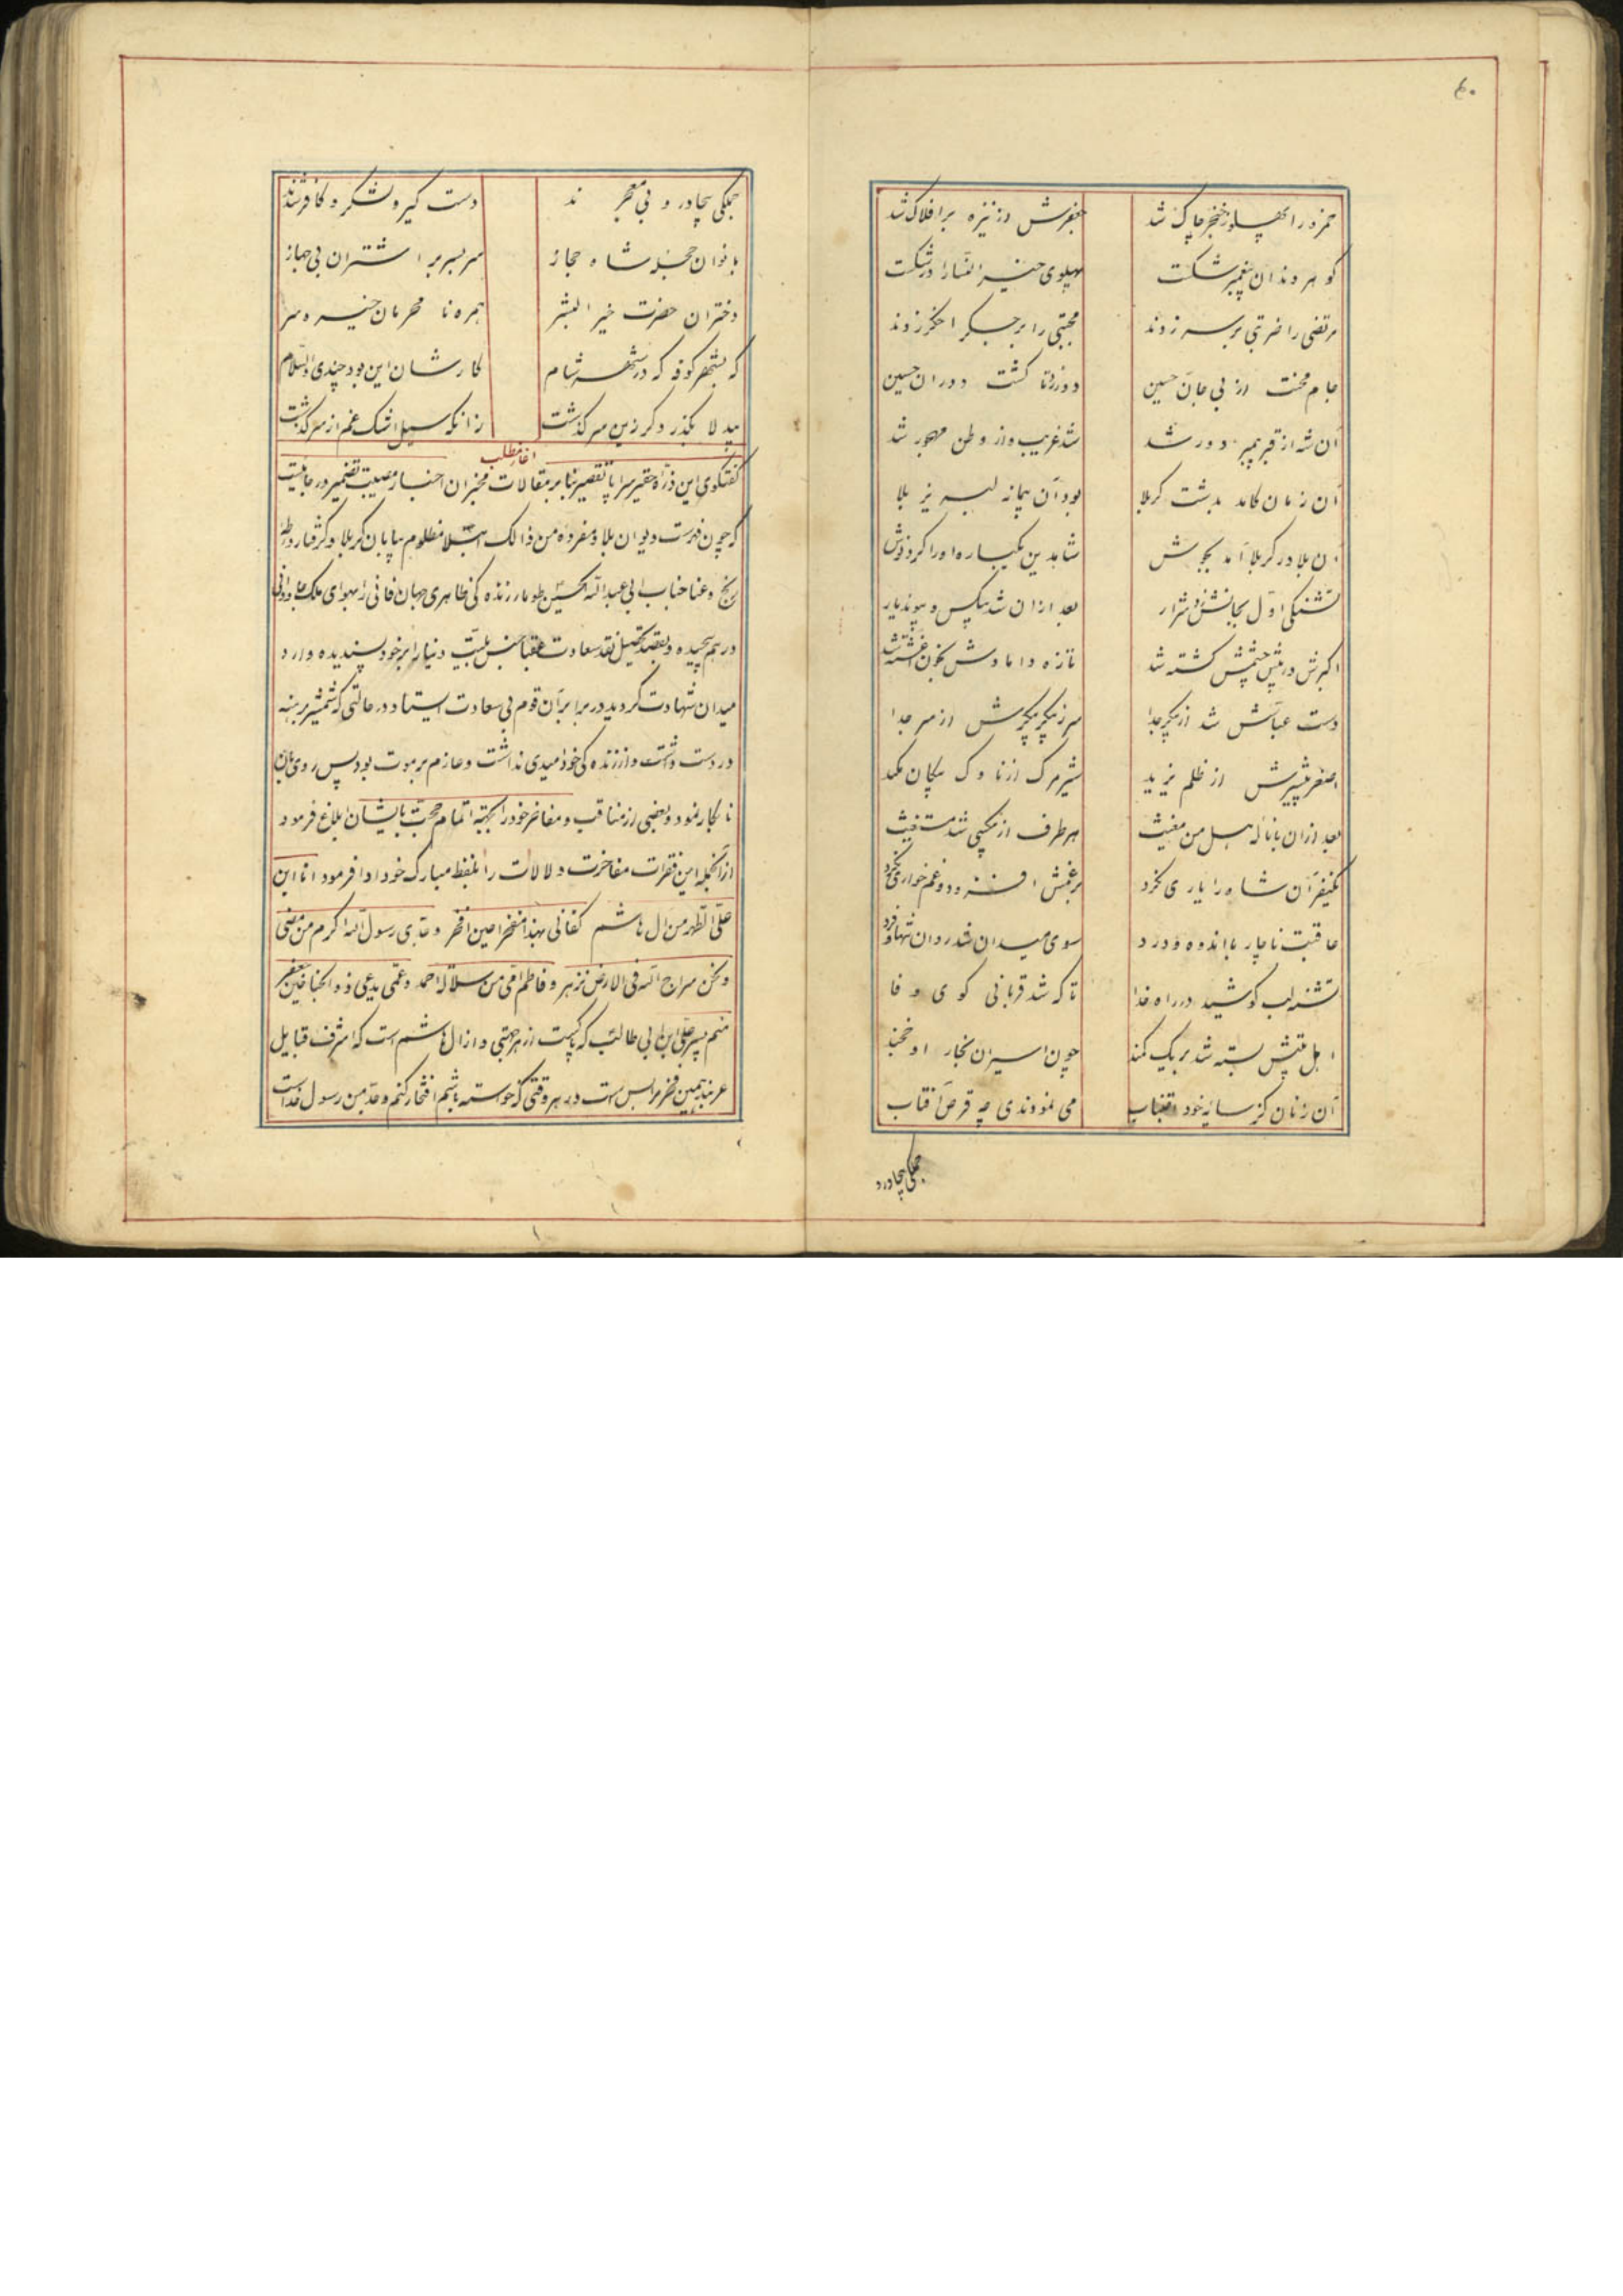 ۴۰
حمزه را پهلو ز خنجر چاک شد جعفرش از نیزه بر افلاک شد
گوهر دندان پیغمبر شکست پهلوی خیر النسا را در شکست
مرتضی را ضربتی بر سر زدند مجتبی را بر جگر اخکر زدند
جام محنت از بی جان حسین دور زد تا کشت دوران حسین
آن شه از قبر پیمبر دور شد شد غریب و از وطن مهجور شد
آن زمان کامد بدشت کربلا بود آن پیمانه لبریز بلا
آن بلا در کربلا آمد بجوش شاهدین یکباره او را کرد نوش
تشنکی اول بجانش زد شرار بعد ازان شد بیکس و بی یار
اکبرش در پیش چشمش کشته شد تازه دامادش بخون آغشته شد
دست عباسش شد از پیکر جدا سر ز پیکر پیکرش از سر جدا
اصغر بیشیرش از ظلم یزید شیر مرک از ناوک پیکان مکید
بعد ازان با ناله هل من مغیث هر طرف از بیکسی شد مستغیث
یکنفر آن شاه را یاری نکرد بر غمش افزود و غمخواری نکرد
عاقبت ناچار با اندوه و درد سوی میدان شد روان تنها و فرد
تشنه لب کوشید در راه خدا تا که شد قربانی کوی وفا
اهل بیتش بسته شد بر یک کمند چون اسیران بخار او خجند
آن زنان کز سایه خود اجتناب می نمودندی چه قرص آفتاب
جملکی بیچادر و
جملکی بیچادر و بی معجرند دست کیر و لشکر و کافرشدند
بانوان حجله شاه حجاز سر بسر بر اشتران بی جهاز
دختران حضرت خیر البشر همره نا محرمان خیره سر
که بشهر کوفه که در شهر شام کارشان این بود چندی والسلام
بیدلا بکذر دکر زین سرکذشت زانکه سیل اشک غم از سر کذشت
آغاز مطلب
کفتکوی این ذره حقیر سراپا تقصیر بنا بر مقالات مخبران اخبار مصیبت تخمیر در جائیست
که چون فهرست دیوان بلا و مفرده من ذالک ابتلا مظلوم بیابان کربلا و کرفتار ورطه
رنج و عنا جناب ابی عبدالله الحسین طومار زنده کی ظاهری جهان فانی را بهوای ملک جاودانی
درهم پیچیده و بقصد تحصیل نقد سعادت عقبا جنس بلیت دنیا را بر خود پسندیده وارد
میدان شهادت کردید در برابر آن قوم بی سعادت ایستاد در حالتی که شمشیر برهنه
در دست داشت و از زنده کی خود امیدی نداشت و عازم بر موت بود پس روی بآن
نابکار نمود و بعضی از مناقب و مفاخر خود را بجهته اتمام حجت بایشان ابلاغ فرمود
از آنجمله این فقرات مفاخرت دلالات را بلفظ مبارک خود ادا فرمود انا ابن
علی الطهر من ال هاشم کفانی بهذا مفخرا حین افخر و جدی رسول الله اکرم من مضی
و نحن سراج الله فی الارض نزهر و فاطم امی من سلالة احمد و عمی یدعی ذو الجناحین جعفر
منم پسر علی ابن ابی طالب که پاکست از هر عیبی و از ال هاشم است که اشرف قبایل
عربند همین فخر مرا بس است در هر وقتی که خواسته باشم افتخار کنم و جد من رسول خداست